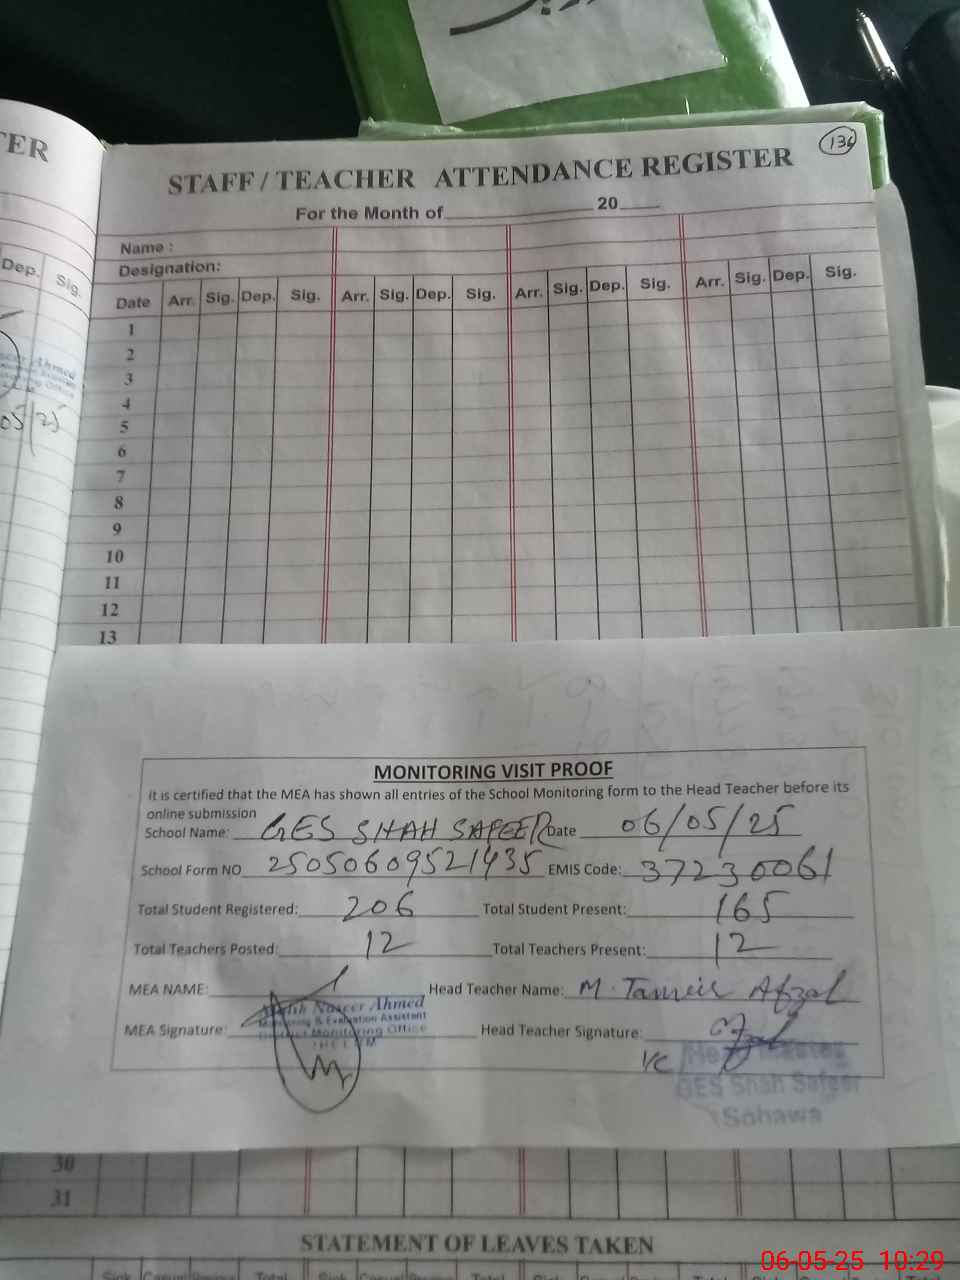 TER
136
STAFF / TEACHER ATTENDANCE REGISTER
For the Month of 20
Name :
Designation:
Dep. Sig.
Date Arr. Sig. Dep. Sig. Arr. Sig. Dep. Sig. Arr. Sig. Dep. Sig. Arr. Sig. Dep. Sig.
1
2
3
4
5
6
7
8
9
10
11
12
13
Ahmed
05/25
MONITORING VISIT PROOF
It is certified that the MEA has shown all entries of the School Monitoring form to the Head Teacher before its
online submission
School Name: GES SHAH SAFEER Date 06/05/25
School Form NO 25050609521435 EMIS Code: 37230061
Total Student Registered: 206 Total Student Present: 165
Total Teachers Posted: 12 Total Teachers Present: 12
MEA NAME: Head Teacher Name: M. Tameir Afzal
Naseer Ahmed
Monitoring & Evaluation Assistant
District Monitoring Office
JHELUM
MEA Signature: Head Teacher Signature:
I/C Head Master
GES Shah Safeer
Sohawa
30
31
STATEMENT OF LEAVES TAKEN
Sick Casual Total Sick Casual Total Sick Casual Total
06-05-25 10:29